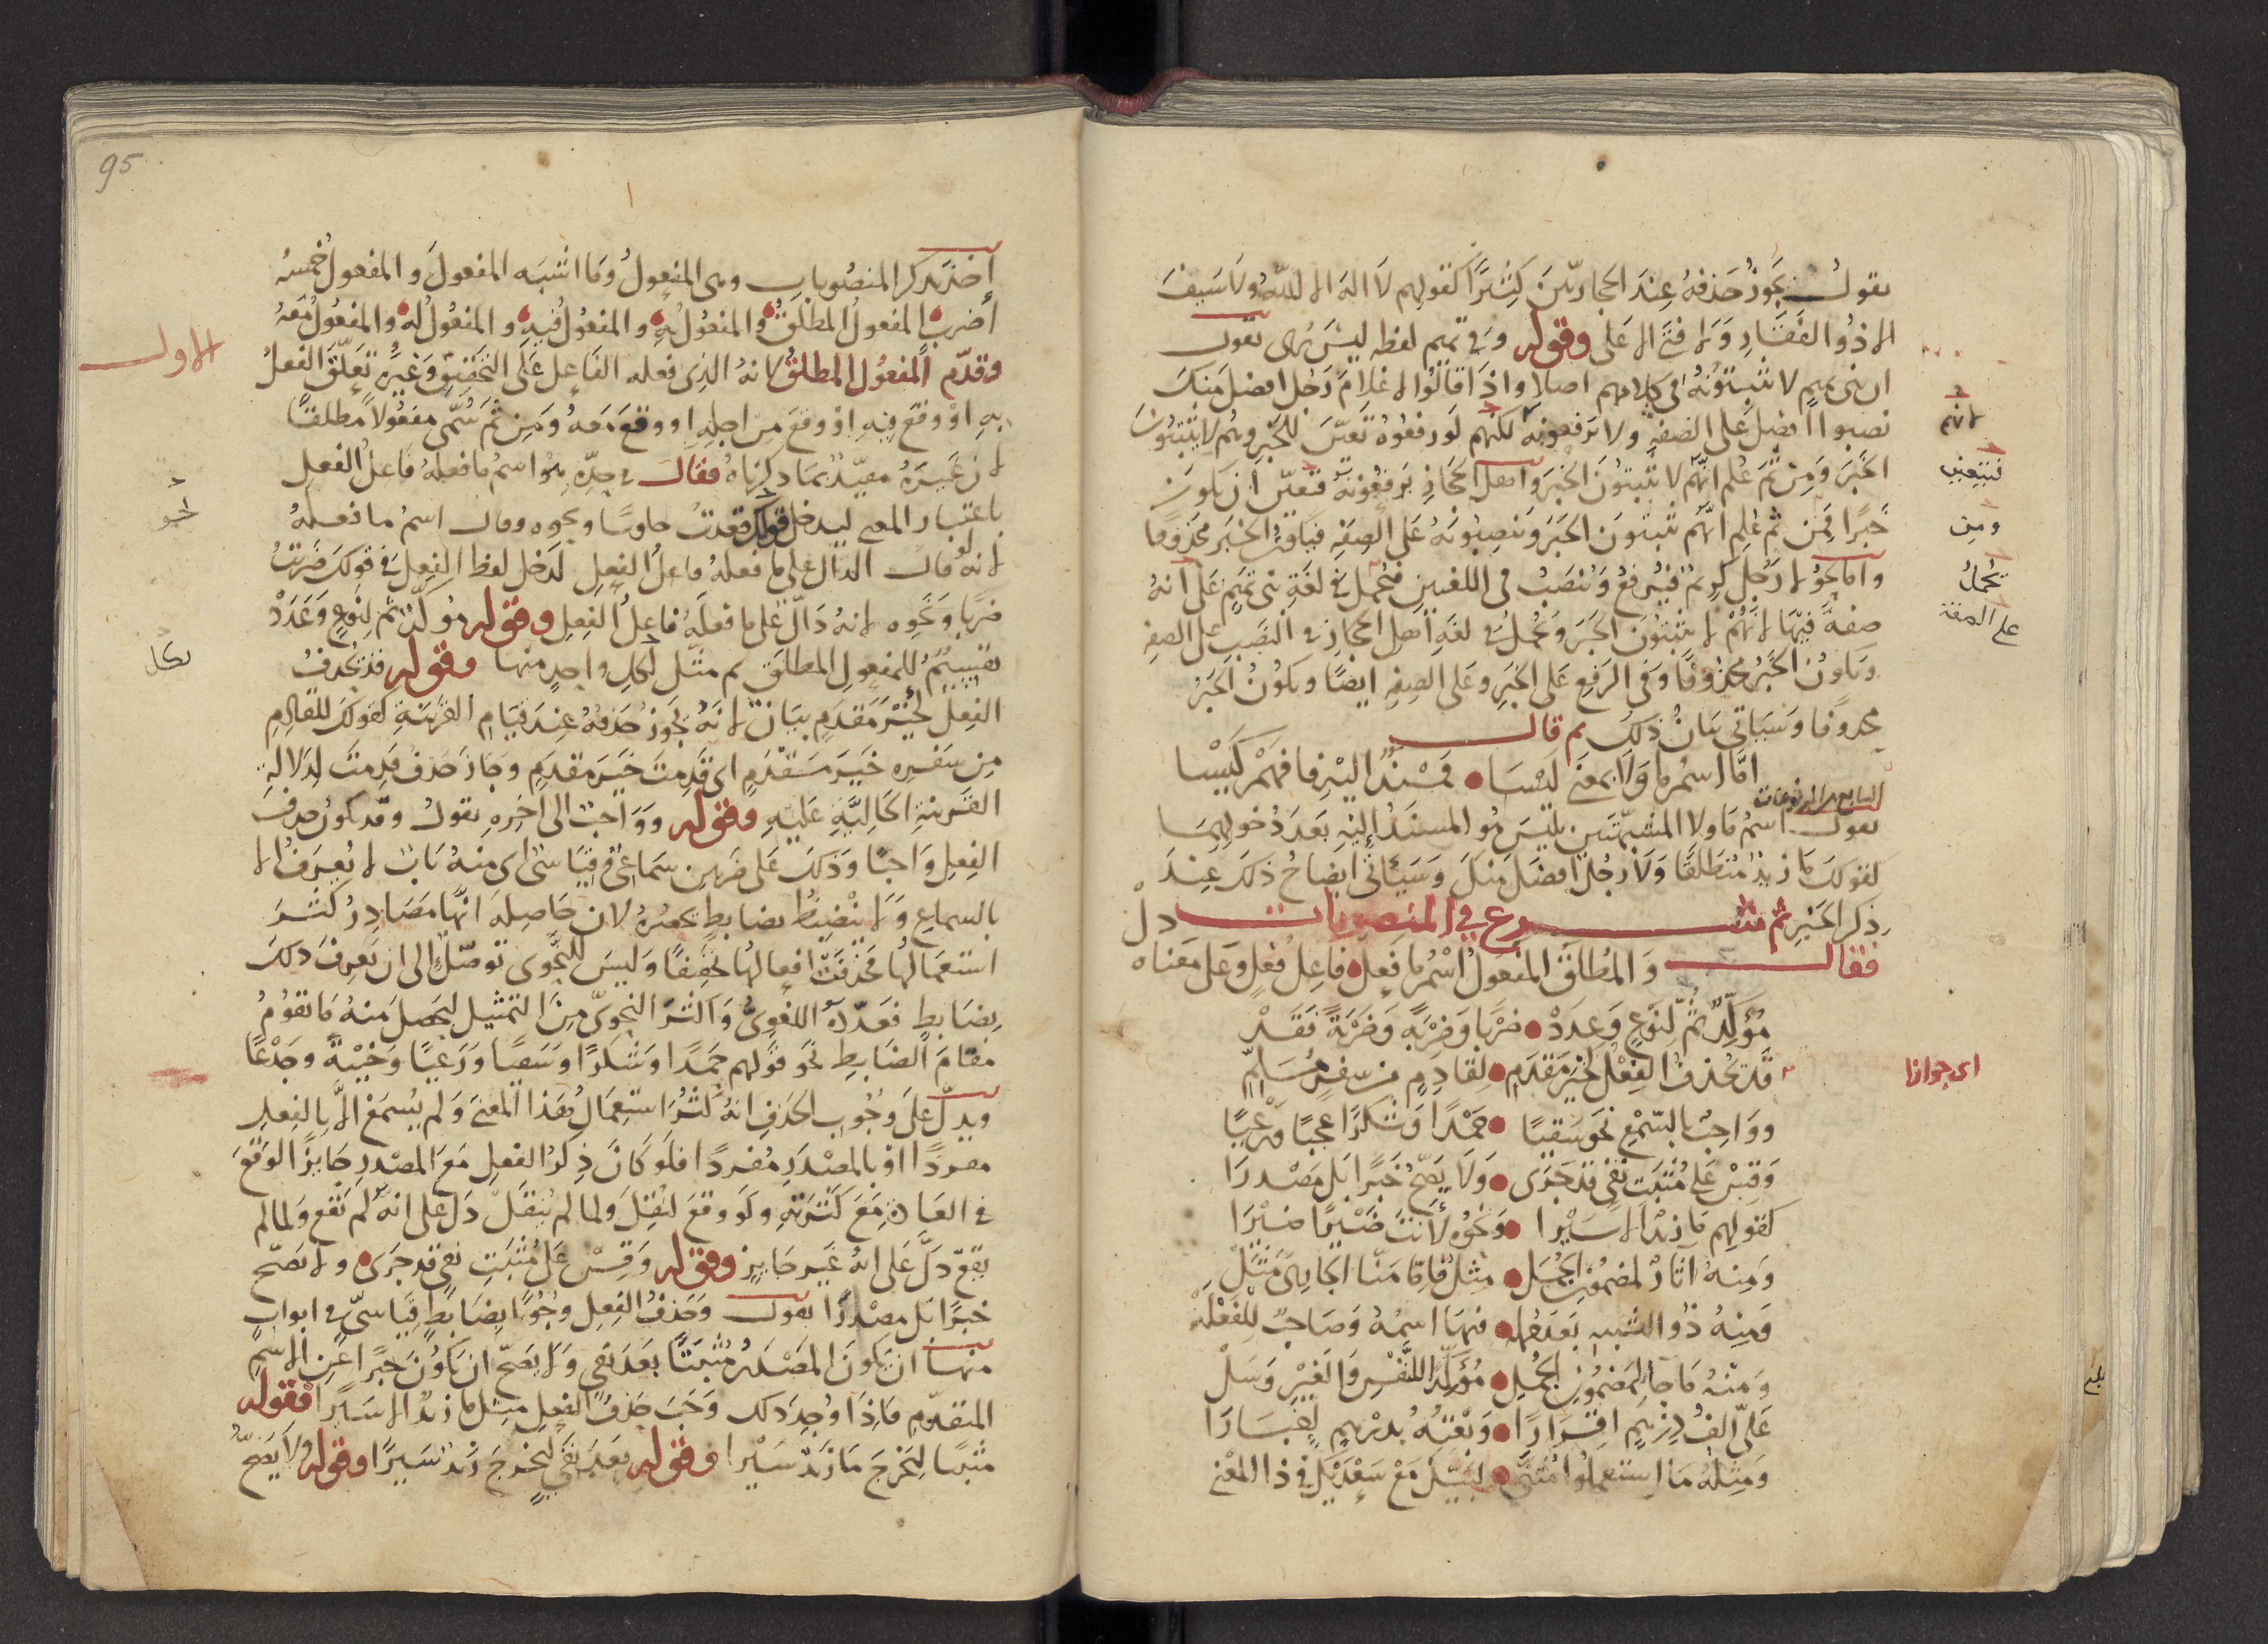 يقول يجوز حذفه عند الحجازيين كثيرًا كقولهم لا اله الا الله ولا سيف
الا ذو الفقار ولا فتى الا على وقوله وفي تميم لفظه ليس يرى يقول
ان بنى تميم لا يثبتونه في كلامهم اصلا واذا قالوا لا غلام رجل افضل منك
نصبوا افضل على الصفة ولا يرفعونه لكنهم لو رفعوه تعيّن للخبر وهم لا يثبتون
الخبر ومن ثم علم انهم لا يثبتون الخبر واهل الحجاز يرفعونه فتعيّن ان يكون
خبرًا فمن ثم علم انهم يثبتون الخبر وينصبونه على الصفة فيبقى الخبر محذوفا
واما نحو لا رجل كريم فيرفع وينصب في اللغتين فيحمل في لغة بنى تميم على انه
صفة فيها لانهم لا يثبتون الخبر ويحمل في لغة اهل الحجاز في النصب على الصفة
ويكون الخبر محذوفًا وفي الرفع على الخبر وعلى الصفة ايضًا ويكون الخبر
محذوفا وسياتي بيان ذلك ثم قال
امّا اسم ما ولا بمعنى ليسا فمسند اليه فافهم كيسا
السابع من المرفوعات
يقول اسم ما ولا المشبهتين بليس هو المسند اليه بعد دخولهما
كقولك ما زيد منطلقا ولا رجل افضل منك وسياتي ايضاح ذلك عند
ذكر الخبر ثم شرع في المنصوبات
فقال والمطلق المفعول اسم ما فعل فاعل فعل وعلى معناه دل
مؤكّد ثم لنوع وعدد ضربا وضربة وضربة فقد
قد تحذف الفعل لخير مقدم لقادم من سفر مسلم
وواجب بالسمع نحو سقيا حمدا وشكرا عجبا ورعيا
وقس على مثبت نفى قد جرى ولا يصح خبرا بل مصدرا
كقولهم ما زيد الا سيرا ونحوه لانت سيرا سيرا
ومنه اثار لمضمون الجمل مثل فاما منّا الجايى مثل
ومنه ذو الشبه بعد جمله فيها اسمه وصاحب للفعله
ومنه ما جا لمضمون الجمل مؤكّد النفس والغير وسل
على الف درهم اقرارا ونعته بدرهم اعتبارا
ومثله ما استعملوا مثنّى لبّيك مع سعديك في ذا المعنى
لانهم
فتتعين
ومن
يحمل
على الصفة
اى جوازا
95
اخذ يذكر المنصوبات وهى المفعول وما اشبه المفعول والمفعول خمسة
اضرب المفعول المطلق والمفعول به والمفعول فيه والمفعول له والمفعول معه
وقدّم المفعول المطلق لانه الذى فعله الفاعل على التحقيق وغيره تعلّق الفعل
به او وقع فيه او وقع من اجله او وقع معه ومن ثم سُمّى مفعولا مطلقًا
لان غيره مقيّد بما ذكرناه فقال في حدّه هو اسم ما فعله فاعل الفعل
باعتبار المعنى ليدخل قولك قعدت جلوسًا ونحوه وقال اسم ما فعله
لانه لو قال الدال على ما فعله فاعل الفعل لدخل لفظ الفعل في قولك ضربت
ضربا ونحوه لانه دالّ على ما فعله فاعل الفعل وقوله مؤكّد ثم لنوع وعدد
تقسيم للمفعول المطلق ثم مثّل لكل واحد منها وقوله قد تحذف
الفعل لخير مقدم بيان لانه يجوز حذفه عند قيام القرينة كقولك للقادم
من سفره خير مقدم اى قدمت خير مقدم وجاز حذف قدمت لدلالة
القرينة الحالية عليه وقوله وواجب الى اخره يقول وقد يكون حذف
الفعل واجبًا وذلك على ضربين سماعى وقياسى اى منه باب لا يعرف الا
بالسماع ولا ينضبط بضابط يحصره لان حاصله انها مصادر كثر
استعمالها فحذفت افعالها تخفيفًا وليس للنحوى توصّل الى ان يعرف ذلك
بضابط فعدّة اللغوى واكثر النحوى من التمثيل ليحصل منه ما تقوم
مقام الضابط نحو قولهم حمدًا وشكرًا وسقيًا ورعيًا وخيبة وجدعًا
ويدلّ على وجوب الحذف انه كثر استعمال هذا المعنى ولم يسمع الا بالفعل
مفردًا او بالمصدر مفردًا فلو كان ذكر الفعل مع المصدر جايز الوقوع
في العادة مع كثرته ولو وقع لنقل ولما لم ينقل دل على انه لم يقع ولما لم
يقع دلّ على انه غير جايز وقوله وقس على مثبت نفى قد جرى ولا يصح
خبرًا بل مصدرًا يقول وحذف الفعل وجوبًا بضابط قياسىّ في ابواب
منها ان يكون المصدر مثبتًا بعد نفى ولا يصحّ ان يكون خبرًا عن الاسم
المتقدّم فاذا وجد ذلك وجب حذف الفعل مثل ما زيد الا سيرًا فقوله
مثبتا ليخرج ما زيد سيرا وقوله بعد نفى ليخرج زيد سيرًا وقوله ولا يصحّ
الاول
نحو
لكل